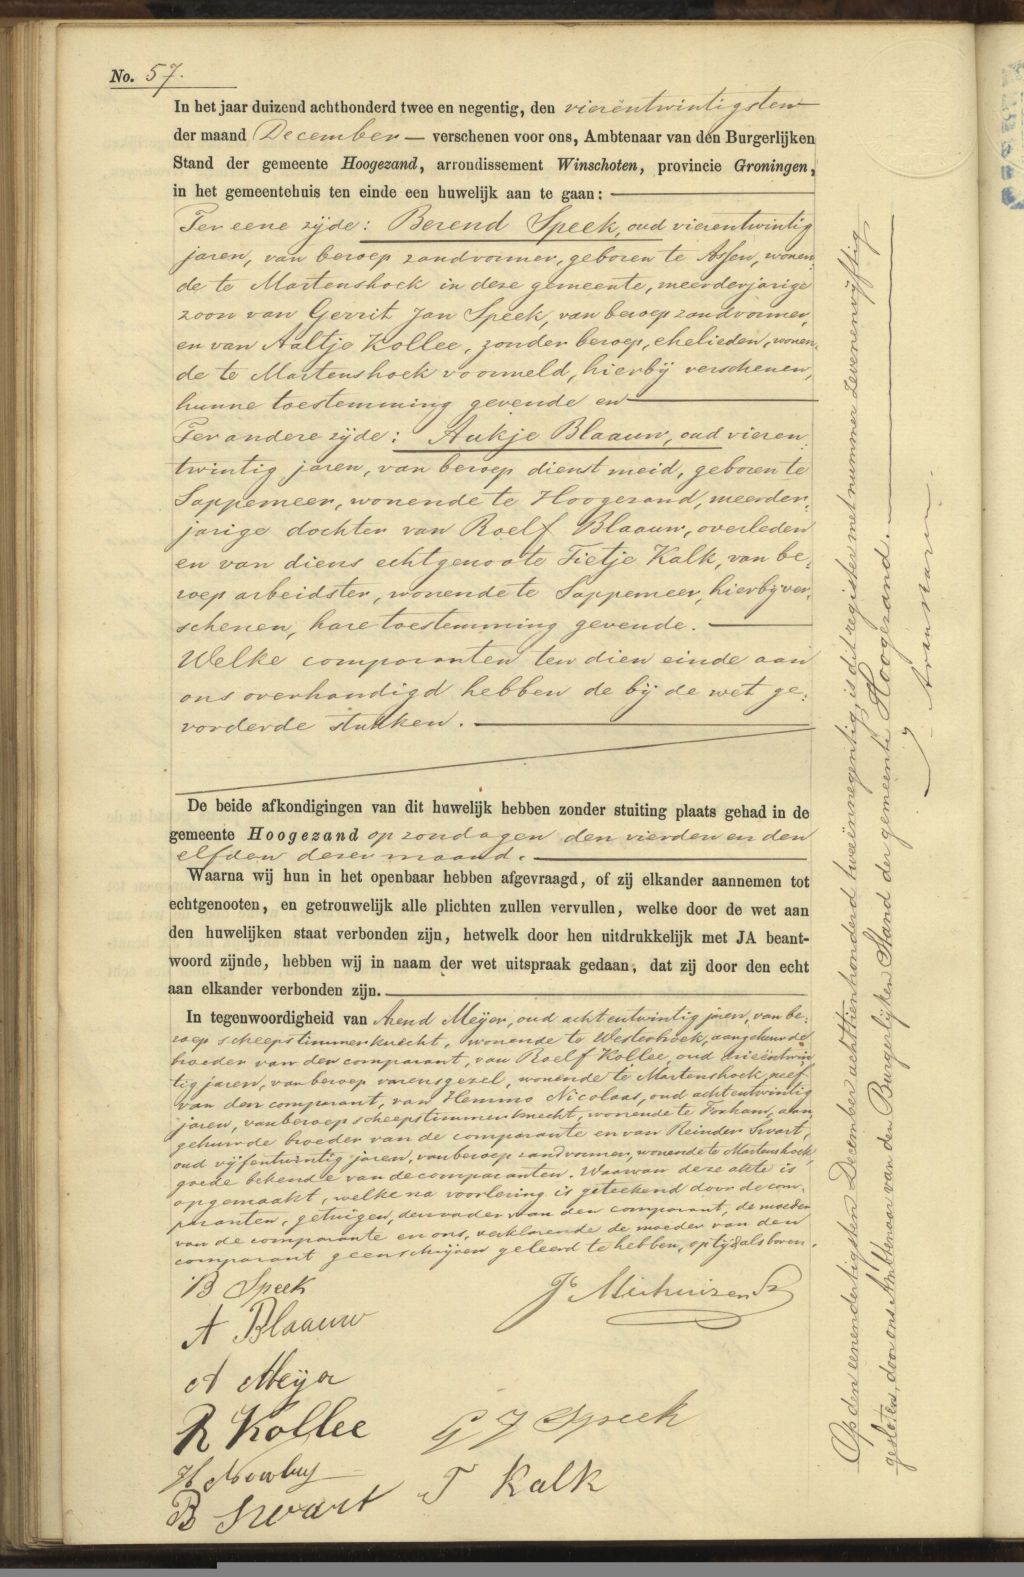 No. 57.
In het jaar duizend achthonderd twee en negentig, den vierentwintigsten
der maand December — verschenen voor ons, Ambtenaar van den Burgerlijken
Stand der gemeente Hoogezand, arrondissement Winschoten, provincie Groningen,
in het gemeentehuis ten einde een huwelijk aan te gaan:
Ter eene zijde: Berend Speek, oud vierentwintig
jaren, van beroep zandvormer, geboren te Assen, wonen
de te Martenshoek in deze gemeente, meerderjarige
zoon van Gerrit Jan Speek, van beroep zandvormer,
en van Aaltje Kollee, zonder beroep, ehelieden, wonen-
de te Martenshoek voormeld, hierbij verschenen,
hunne toestemming gevende en
Ter andere zijde: Aukje Blaauw, oud vieren
twintig jaren, van beroep dienstmeid, geboren te
Sappemeer, wonende te Hoogezand, meerder
jarige dochter van Roelf Blaauw, overleden
en van diens echtgenoote Tietje Kalk, van be-
roep arbeidster, wonende te Sappemeer, hierbij ver-
schenen, hare toestemming gevende.
Welke comparanten ten dien einde aan
ons overhandigd hebben de bij de wet ge-
vorderde stukken.
De beide afkondigingen van dit huwelijk hebben zonder stuiting plaats gehad in de
gemeente Hoogezand op zondagen den vierden en den
elfden dezer maand.
Waarna wij hun in het openbaar hebben afgevraagd, of zij elkander aannemen tot
echtgenooten, en getrouwelijk alle plichten zullen vervullen, welke door de wet aan
den huwelijken staat verbonden zijn, hetwelk door hen uitdrukkelijk met JA beant-
woord zijnde, hebben wij in naam der wet uitspraak gedaan, dat zij door den echt
aan elkander verbonden zijn.
In tegenwoordigheid van Arend Meijer, oud achtentwintig jaren, van be-
roep scheepstimmerknecht, wonende te Westerbroek, aangehuwde
broeder van den comparant, van Roelf Kollee, oud drieëntwin
tig jaren, van beroep varensgezel, wonende te Martenshoek, neef
van den comparant, van Hemmo Nicolaas, oud achtentwintig
jaren, van beroep scheepstimmerknecht, wonende te Foxham, aan
gehuwde broeder van de comparante en van Reinder Swart,
oud vijfentwintig jaren, van beroep zandvormer, wonende te Martenshoek,
goede bekende van de comparanten. Waarvan deze akte is
opgemaakt, welke na voorlezing is geteekend door de com-
paranten, getuigen, den vader van den comparant, de moeder
van de comparante en ons, verklarende de moeder van den
comparant geen schrijven geleerd te hebben, op tijd als boven.
B Speek
A Blaauw
A Meijer
R Kollee
G J Speek
T Kalk
R Swart
Op den eenendertigsten December achttienhonderd tweeënnegentig, is dit register met nummer zevenenvijftig
gesloten, door ons Ambtenaar van den Burgerlijken Stand der gemeente Hoogezand.